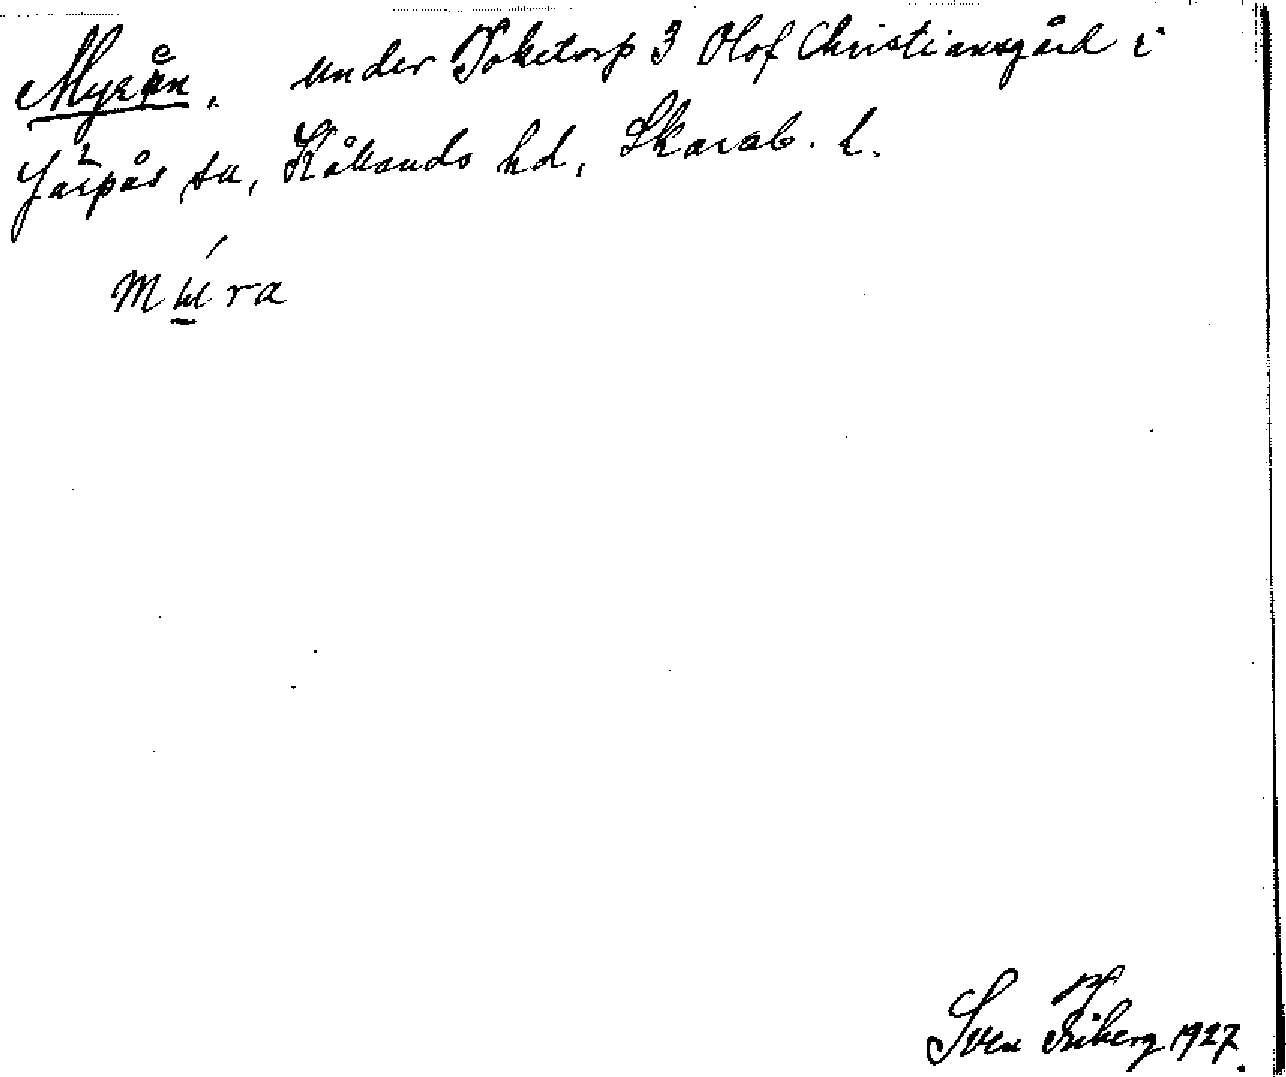 Myren, under Toketorp 3 Olof Christiansgård i
Järpås sn, Kållands hd, Skarab. l.
mɯ́ra
Sven Friberg 1927.